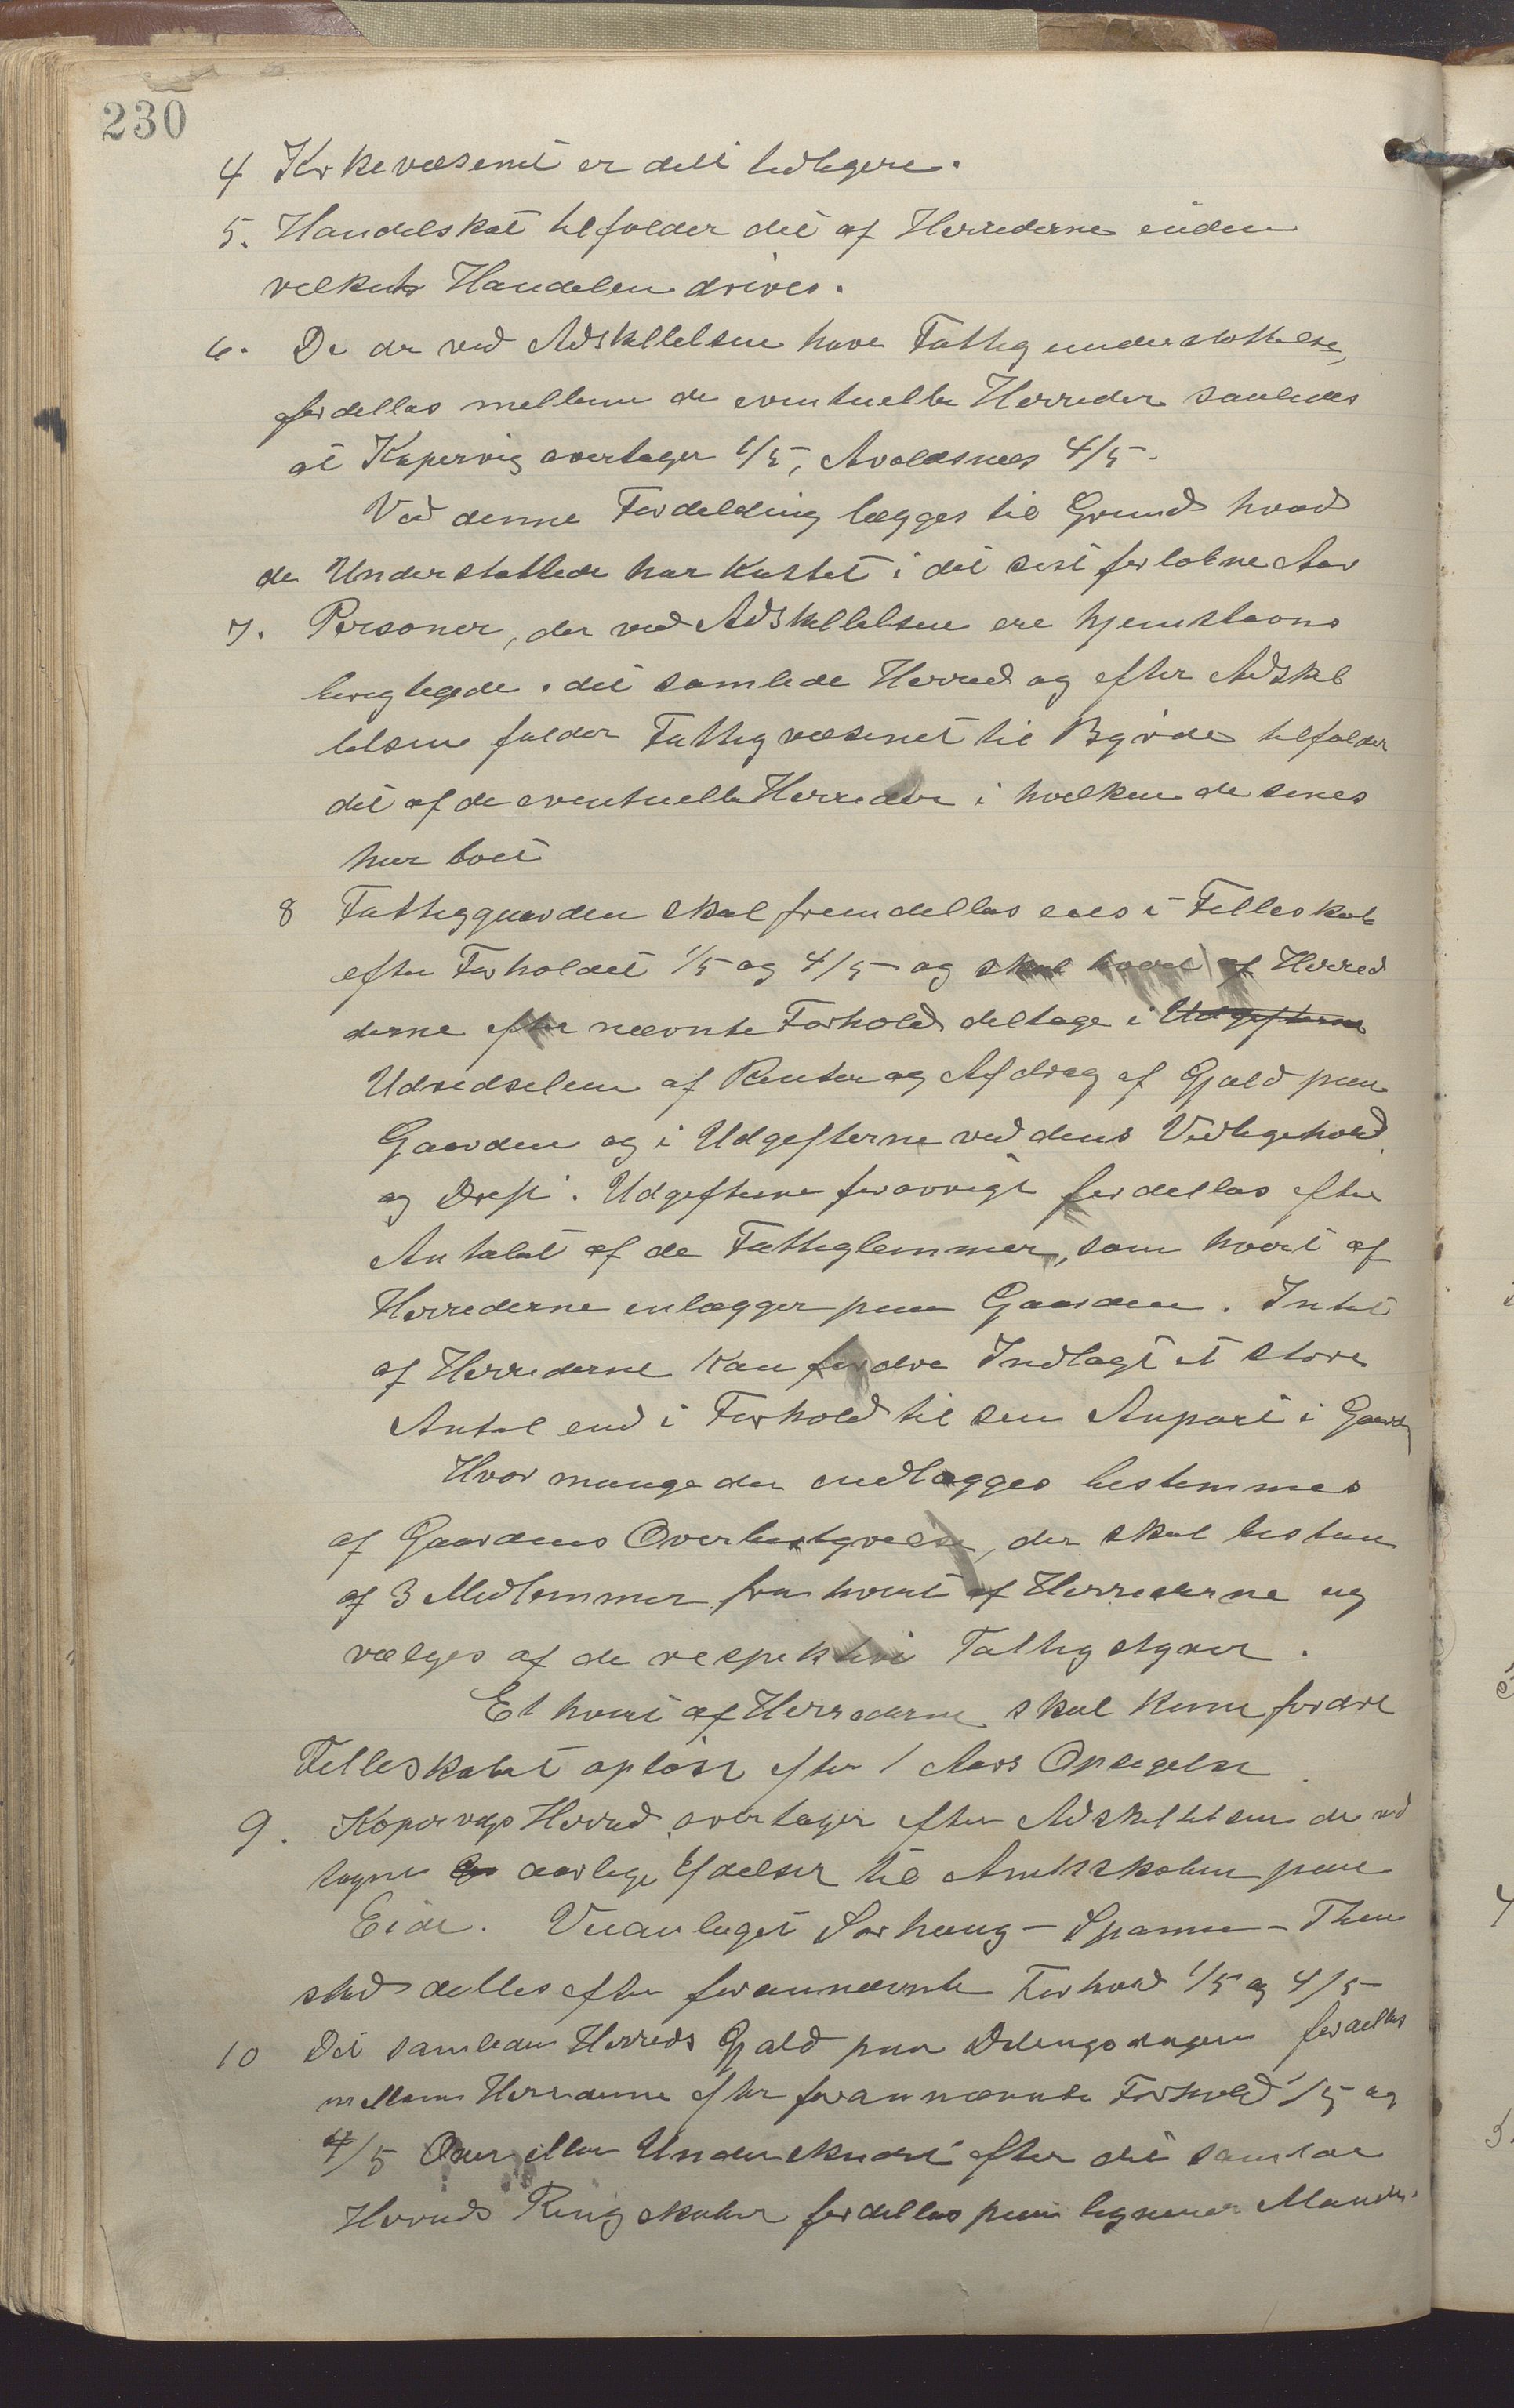 230
4 Kirkevæsenet er delt tidligere.
5. Handelskat tilfalder det af Herrederne inden
vilket Handelen drives.
6. De der ved Adskillelsen have Fattigunderstøttelse,
fordelles mellem de eventuelle Herreder saaledes
at Kopervig overtager 1/5, Avaldsnes 4/5.
Ved denne Fordelding lægges til Grund hvad
de Understøttede har kostet i det sist forløbne Aar
7. Personer, der ved Adskillelsen ere hjemstavns
berigtigede i det samlede Herred og efter Adskil
lelsen falder Fattigvæsenet til Byrde tilfalder
det af de eventuelle Herreder i hvilken de senes
har boet
8 Fattiggaarden skal fremdelles eies i Felleskab
efter Forholdet 1/5 og 4/5 og skal hvert af Herred
derne efter nævnte Forhold deltage i Udgifterne
Udredselen af Renter og Afdrag af Gjæld paa
Gaarden og i Udgifterne ved dens Vedligehold
og Drift. Udgifterne forøvrigt fordelles efter
Antalet af de Fattiglemmer, som hvert af
Herrederne inlægger paa Gaarden. Intet
af Herrederne kan fordre Indlagt et større
Antal end i Forhold til sin Anpart i Gaard
Hvor mange der indlægges bestemmes
af Gaardens Overbestyrelse, der skal bestaa
af 3 Medlemmer fra hvert af Herrederne og
vælges af de respektive Fattigstyrer.
Et hvert af Herrederne skal kunne fordre
Felleskabet opløst efter 1 Aars Opsigelse.
9. Kopervigs Herred overtager efter Adskillelsen de ved
tagne aarlige Ydelser til Amtsskolen paa
Eide. Veianlæget Sørhaug - Spanne - Then
sted delles efter forannævnte Forhold 1/5 og 4/5
10 Det samlede Herreds Gjæld paa Delingsdagen fordelles
mellem Herrederne efter forannævnte Forhold 1/5 og
4/5 Over eller Underskudet efter det samlede
Herreds Regnskaber fordelles paa lignende Maade.